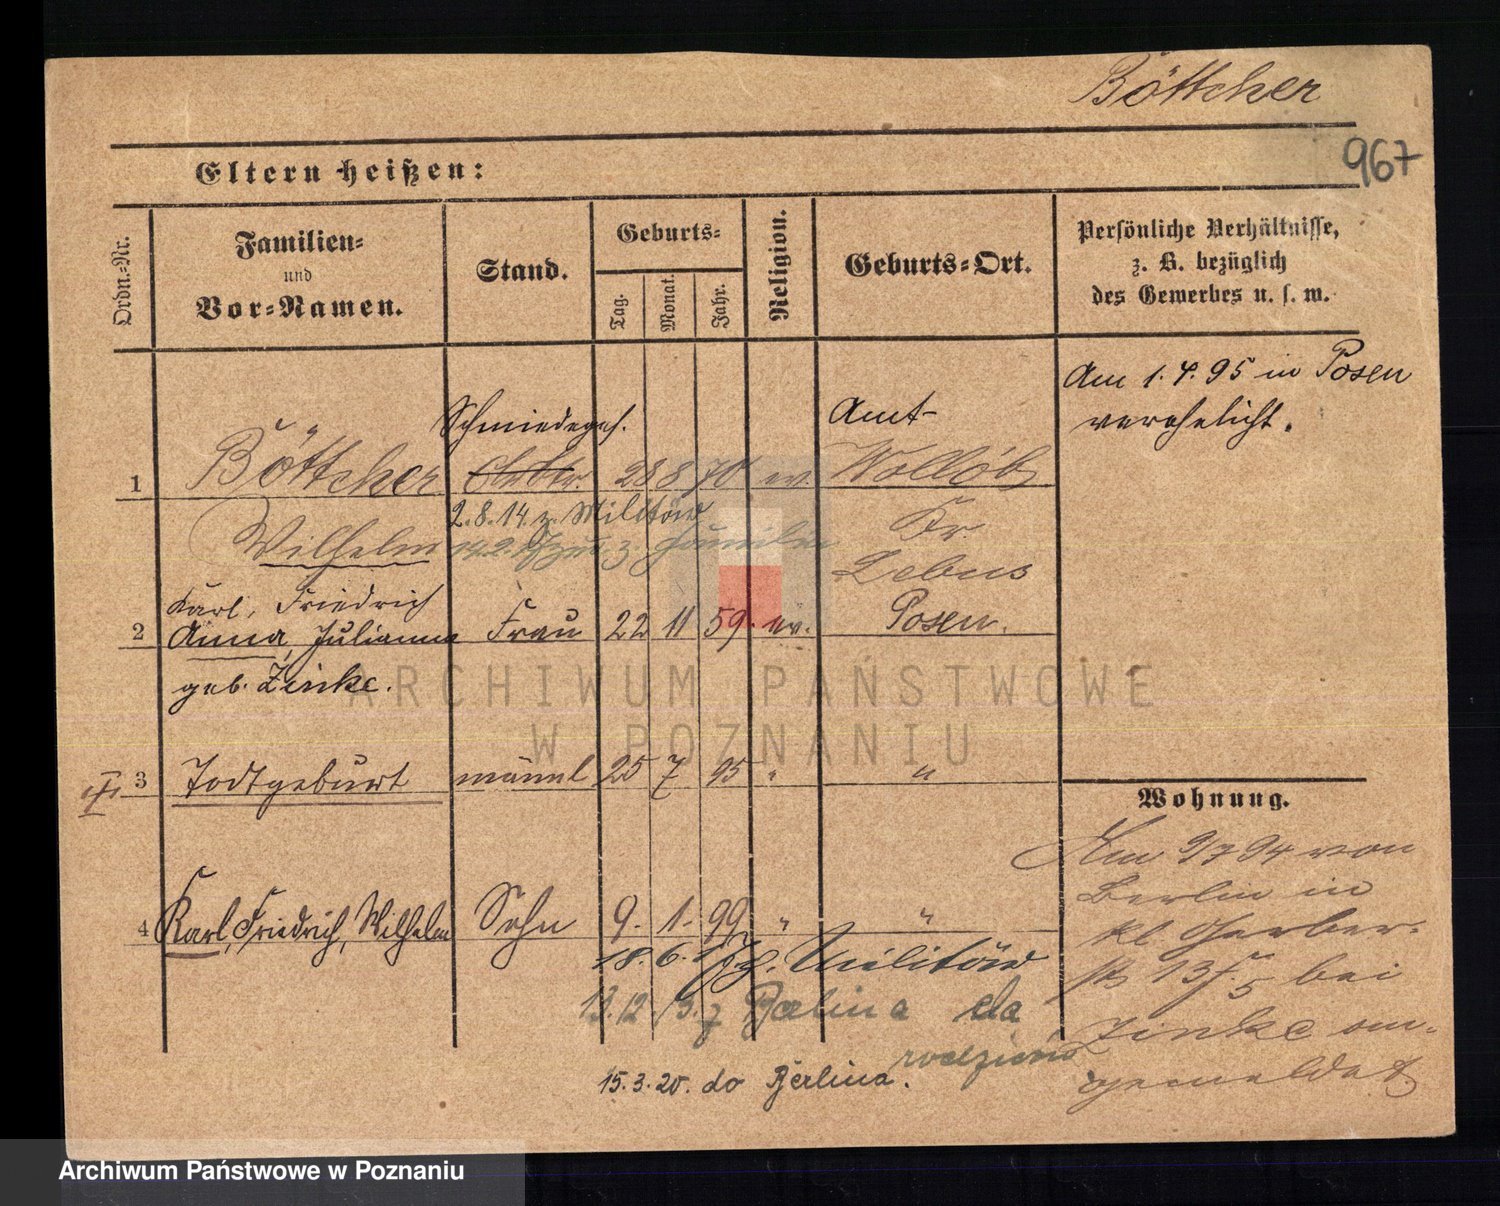 Böttcher
967
Eltern heißen:
Ordn.-Nr.
Familien-
und
Vor-Namen.
Stand.
Geburts-
Tag.
Monat.
Jahr.
Religion.
Geburts-Ort.
Persönliche Verhältnisse,
z. B. bezüglich
des Gewerbes u. s. w.
Am 1. 4. 95 in Posen
verehelicht.
Schmiedeges.
Amt-
1 Böttcher 28 8 70 ev.
2.8.14. z. Militär
Wilhelm
z. Familie
Kr.
Lebus
Karl, Friedrich
2 Anna, Julianna Frau 22 11 59. ev. Posen.
geb. Zinke.
3 Todtgeburt männl 25 7 95 " "
4 Karl, Friedrich, Wilhelm Sohn 9. 1. 99 " "
18. 6. Militär
13.12. z Berlina do
rodziców
15.3.20. do Berlina.
Wohnung.
Am 9/7 94 von
Berlin in
kl. Gerber-
str 13 bei
Zinke an-
gemeldet
ARCHIWUM PAŃSTWOWE
W POZNANIU
Archiwum Państwowe w Poznaniu